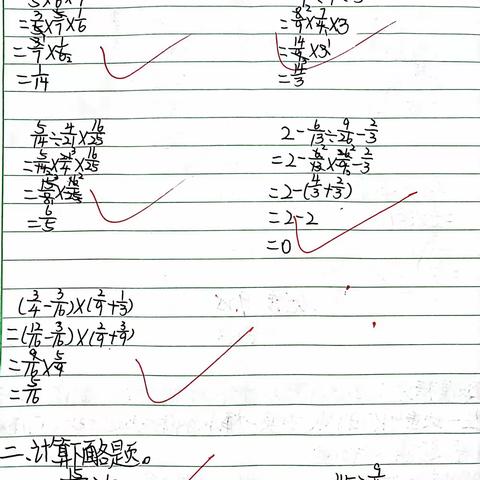 =3/5×5/7×1/6
=3/7×1/6
=1/14
=8/9×7/4×3
=14/9×3
=14/3
5/14÷4/21×16/25
=5/14×21/4×16/25
=15/8×16/25
=6/5
2-6/13÷9/26-2/3
=2-6/13×26/9-2/3
=2-(4/3+2/3)
=2-2
=0
(3/4-3/16)×(2/9+1/3)
=(12/16-3/16)×(2/9+3/9)
=9/16×5/9
=5/16
二、计算下面各题。